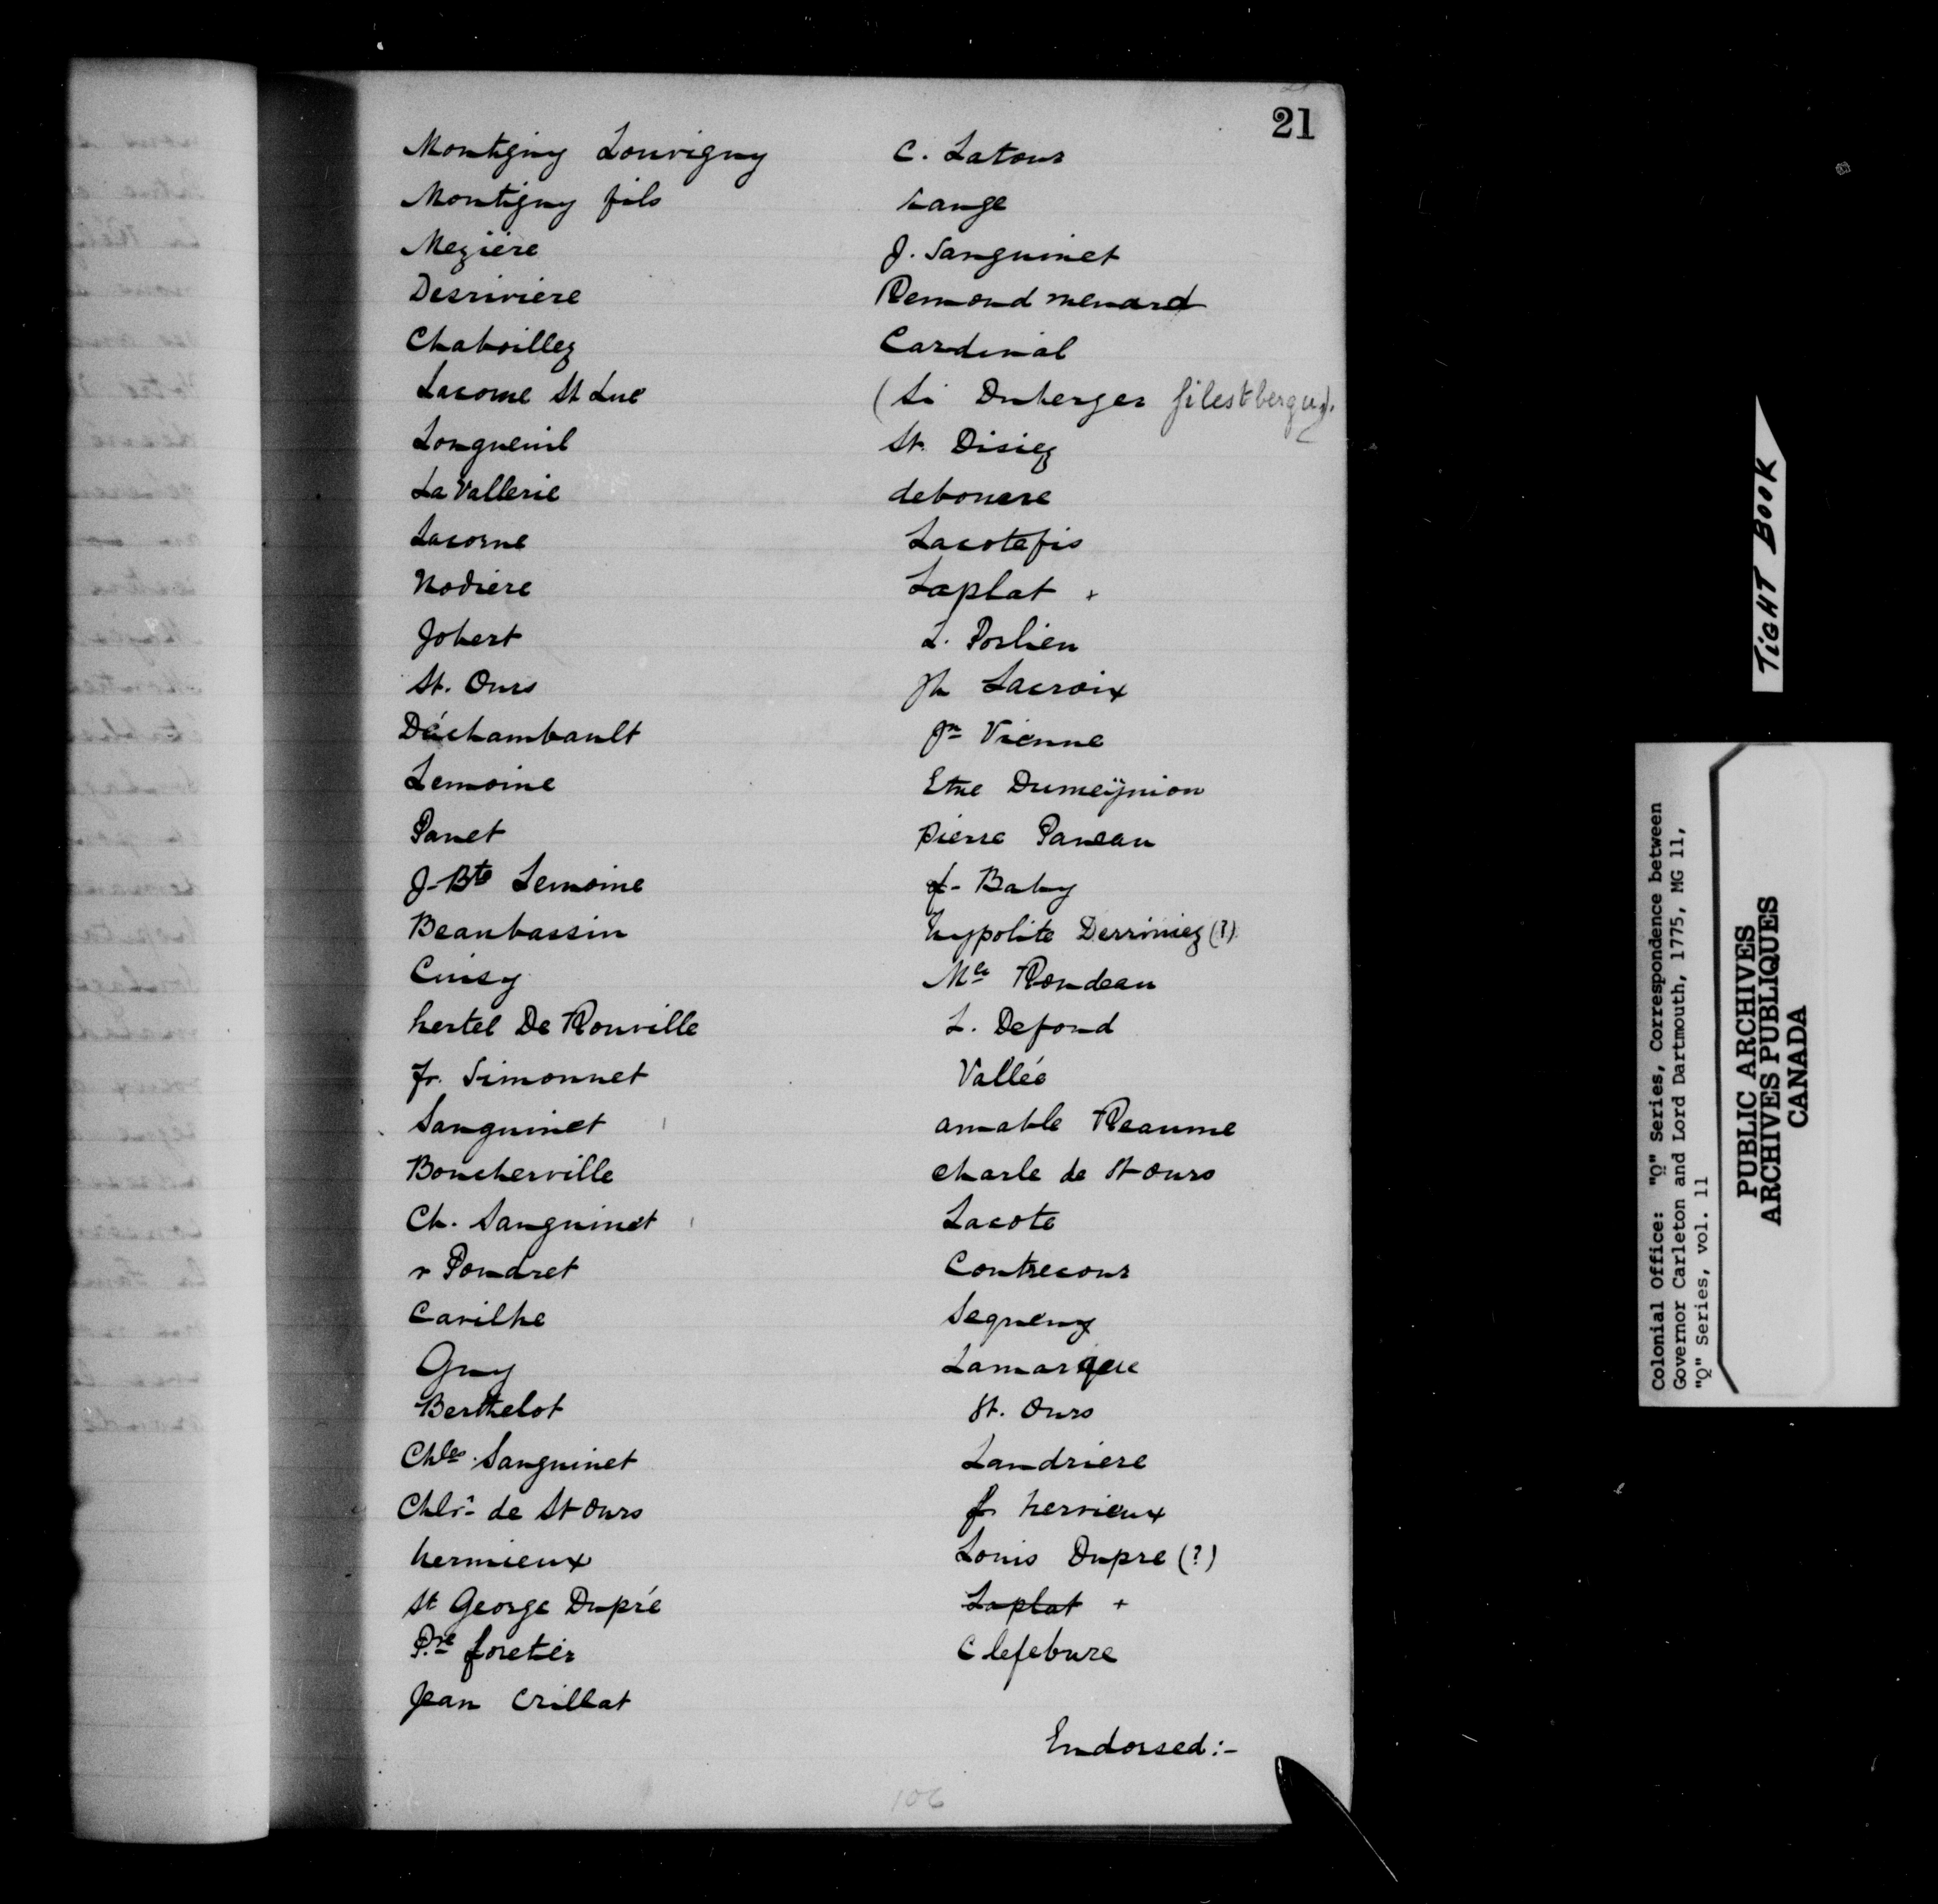 21
Montigny Louvigny
Montigny fils
Mezière
Desrivière
Chaboillez
Lacorne St Luc
Longueuil
La Vallerie
Lacorne
Nodière
Jobert
St. Ours
Déchambault
Lemoine
Panet
J-Bte Lemoine
Beaubassin
Cuisy
hertel De Rouville
fr. Simonnet
Sanguinet
Boucherville
Ch. Sanguinet
r Poudret
Cavilhe
Guy
Berthelot
Chles Sanguinet
Chlr de St Ours
hermieux
St George Dupré
Pre foretier
Jean Crillat
C. Latour
Lange
J. Sanguinet
Remond menard
Cardinal
(Si Duberger filestbergue).
St. Disiez
debonere
Lacotefis
Laplat +
L. Porlieu
Jh Lacroix
Jn Vienne
Etne Dumeÿnion
pierre Paneau
f- Baby
hypolite Derriviez (?)
Mel Rondeau
L. Defond
Vallée
amable Reaume
charle de St ours
Lacote
Contrecour
Segueny
Lamarque
St. Ours
Landriere
fr hervieux
Louis Dupre (?)
Laplat +
C lefebure
Endorsed:-
106
TIGHT BOOK
Colonial Office: "Q" Series, Correspondence between
Governor Carleton and Lord Dartmouth, 1775, MG 11,
"Q" Series, vol. 11
PUBLIC ARCHIVES
ARCHIVES PUBLIQUES
CANADA